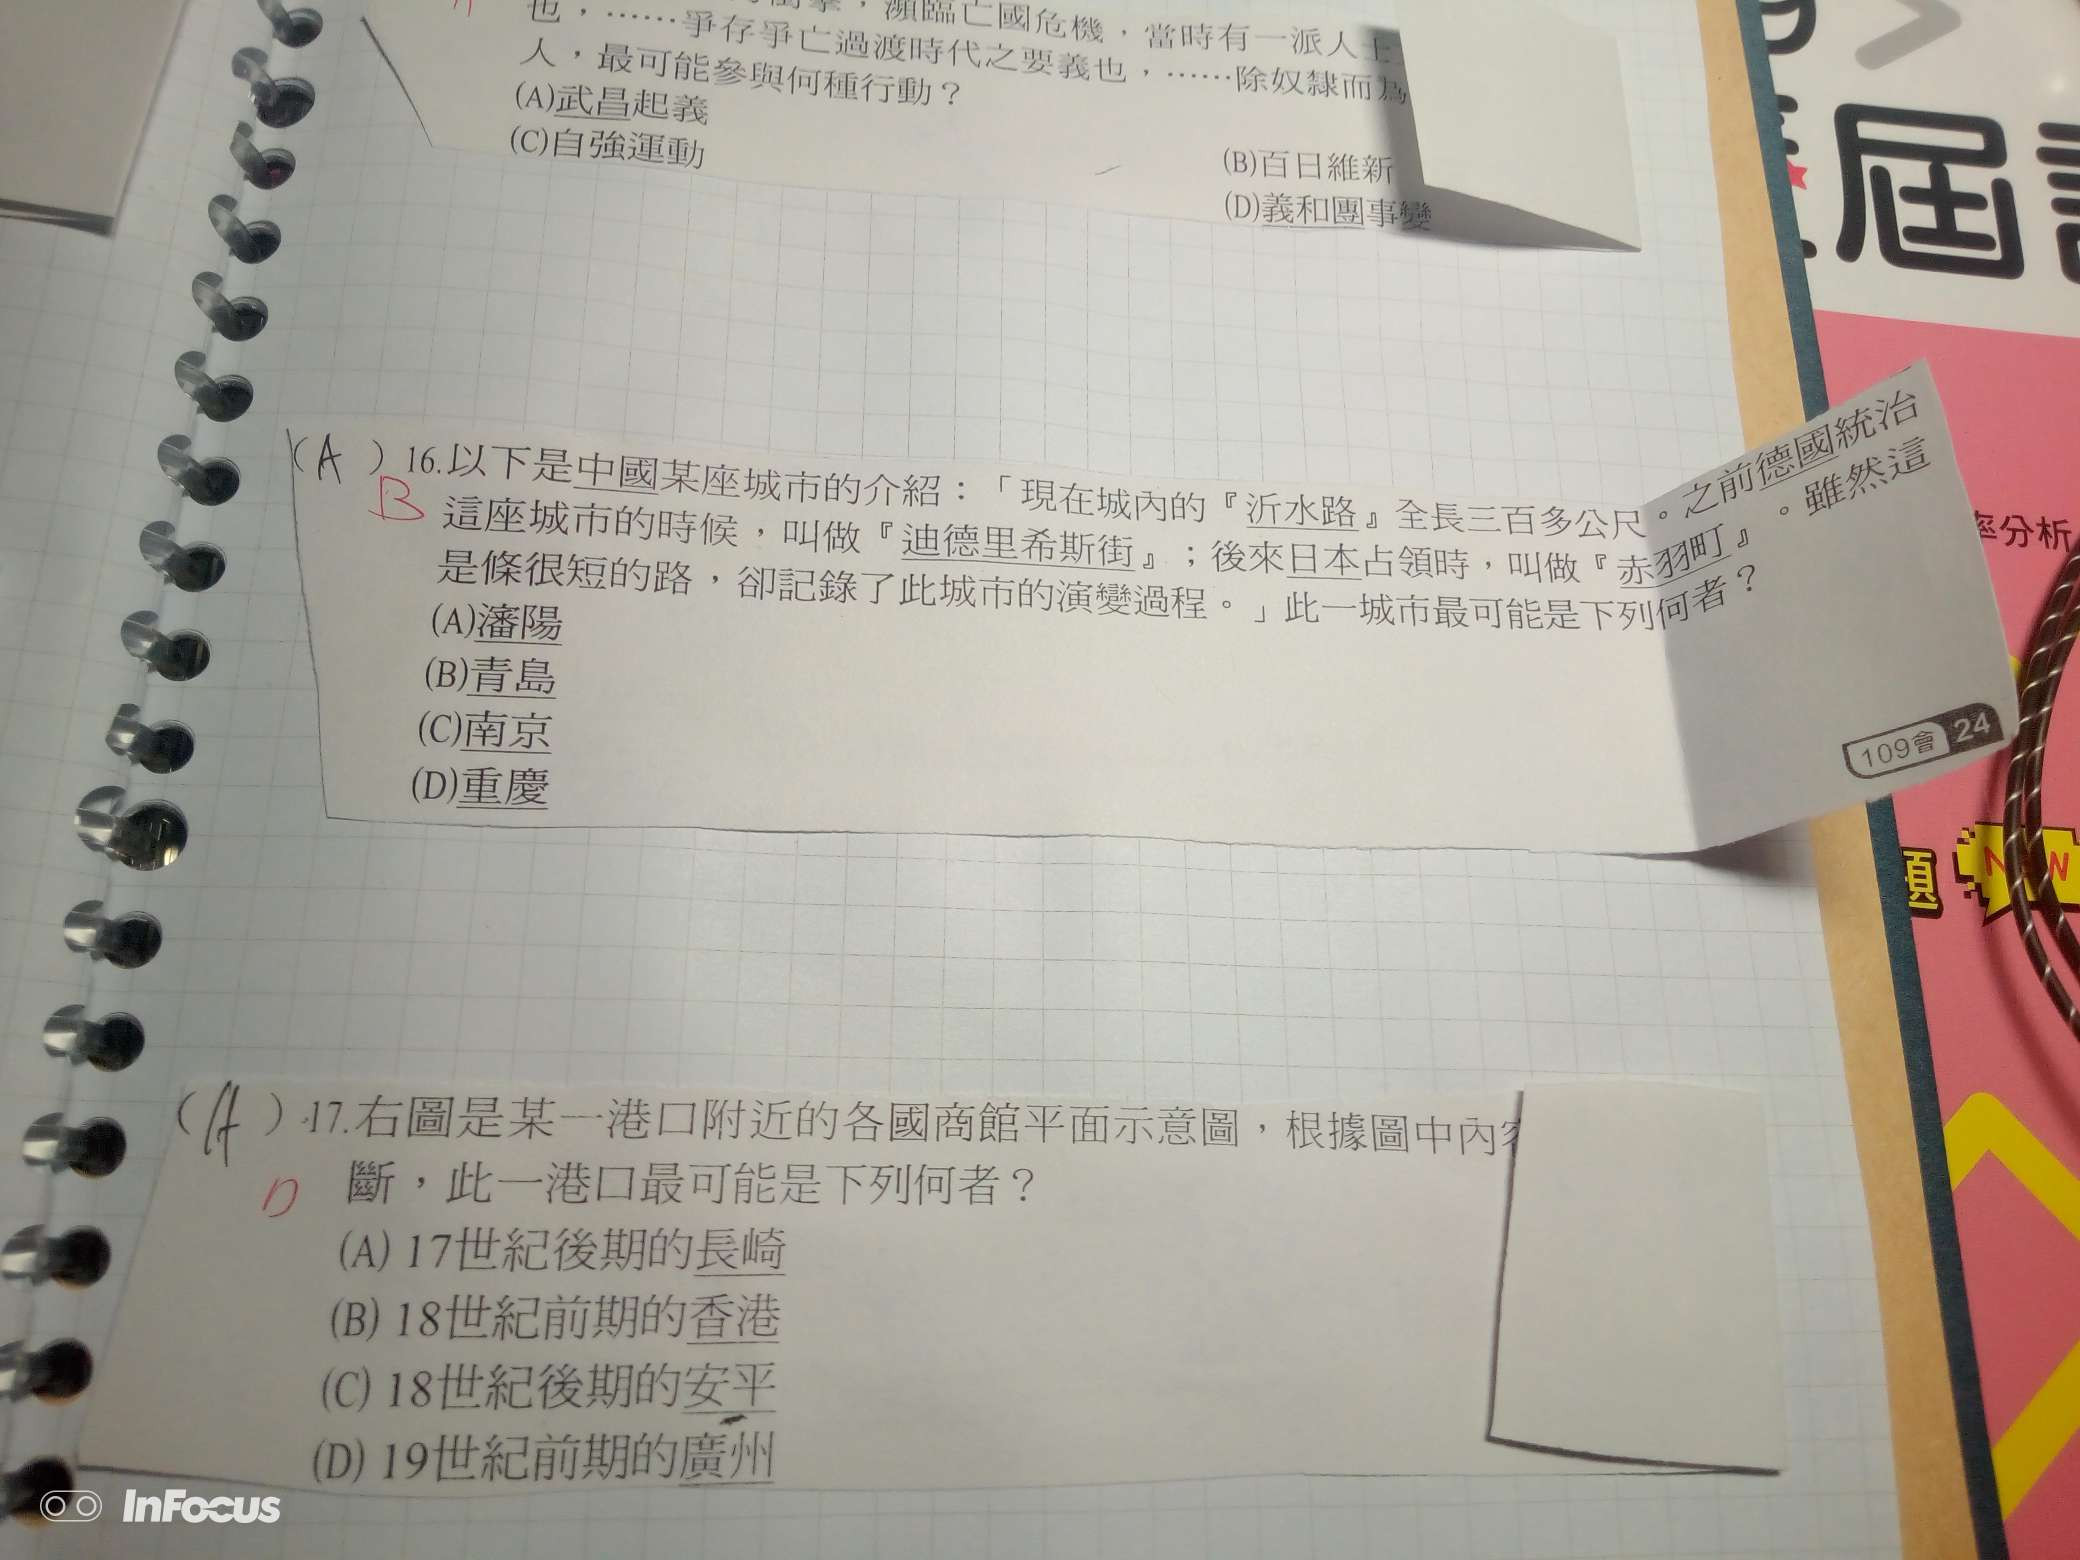 瀕臨亡國危機，當時有一派人士
也，……爭存爭亡過渡時代之要義也，……除奴隸而為
人，最可能參與何種行動？
(A)武昌起義
(B)百日維新
(C)自強運動
(D)義和團事變
(A)16.以下是中國某座城市的介紹：「現在城內的『沂水路』全長三百多公尺。之前德國統治
B
這座城市的時候，叫做『迪德里希斯街』；後來日本占領時，叫做『赤羽町』。雖然這
是條很短的路，卻記錄了此城市的演變過程。」此一城市最可能是下列何者？
(A)瀋陽
(B)青島
(C)南京
(D)重慶
109會 24
(A)17.右圖是某一港口附近的各國商館平面示意圖，根據圖中內
D
斷，此一港口最可能是下列何者？
(A) 17世紀後期的長崎
(B) 18世紀前期的香港
(C) 18世紀後期的安平
(D) 19世紀前期的廣州
屆
率分析
題
NEW
InFocus